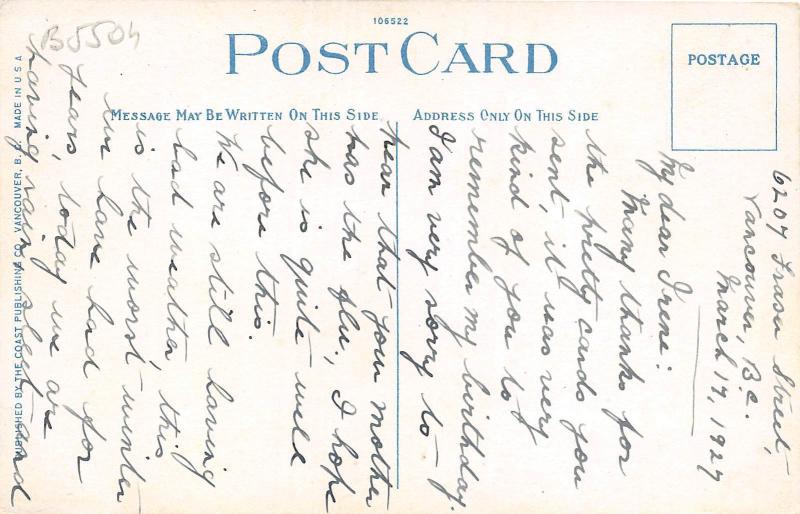 106522
POST CARD
POSTAGE
MESSAGE MAY BE WRITTEN ON THIS SIDE
ADDRESS ONLY ON THIS SIDE
B5504
PUBLISHED BY THE COAST PUBLISHING CO. VANCOUVER, B. C. MADE IN U S A
6207 Fraser Street,
Vancouver, B.C.
March 17, 1927
My dear Irene:
Many thanks for
the pretty cards you
sent, it was very
kind of you to
remember my birthday.
I am very sorry to
hear that your mother
has the flu., I hope
she is quite well
before this.
We are still having
bad weather, this
is the worst winter
we have had for
years, today we are
having rain, sleet and